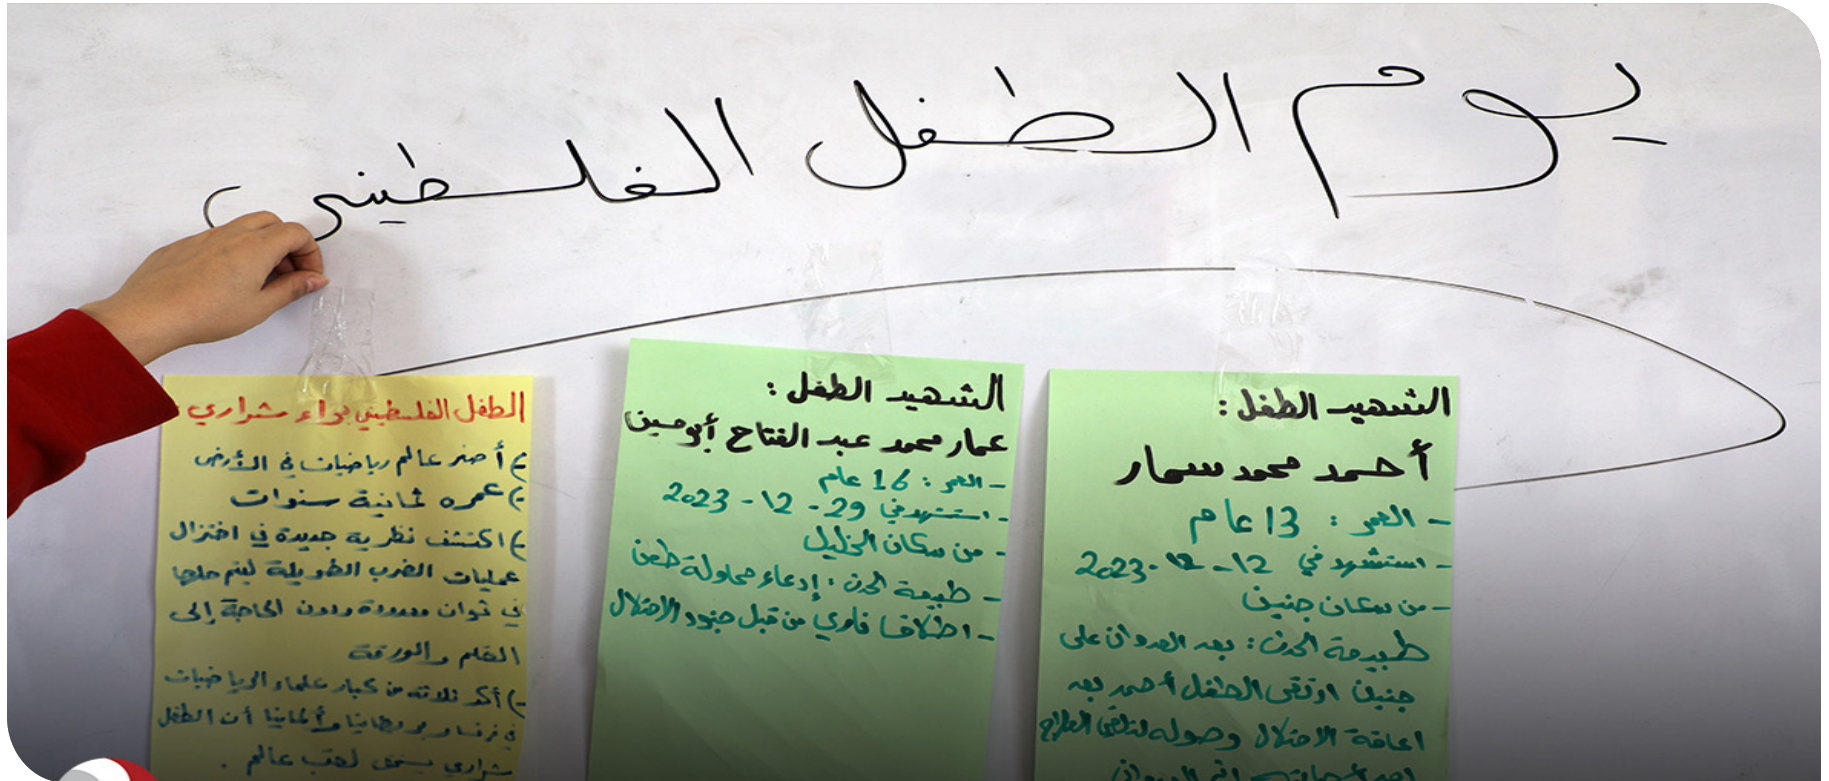 يوم الطفل الفلسطيني
الشهيد الطفل :
أحمد محمد سمار
- العمر : 13 عام
- استشهد في 12 - 12 - 2023
- من سكان جنين
طبيعة الحدث : بعد العدوان على
جنين ارتقى الطفل أحمد بعد
اعاقة الاحتلال وصوله لتلقي العلاج
الشهيد الطفل :
عمار محمد عبد الفتاح أبو حسين
- العمر : 16 عام
- استشهد في 29 - 12 - 2023
- من سكان الخليل
- طبيعة الحدث : إدعاء محاولة طعن
- اطلاق ناري من قبل جنود الاحتلال
الطفل الفلسطيني براء شراري :
أصغر عالم رياضيات في الأرض
عمره ثمانية سنوات
اكتشف نظرية جديدة في اختزال
عمليات الضرب الطويلة ليتم حلها
في ثوان معدودة ودون الحاجة إلى
القلم والورقة
أكد ثلاثة من كبار علماء الرياضيات
في فرنسا وبريطانيا وألمانيا أن الطفل
شراري يستحق لقب عالم .